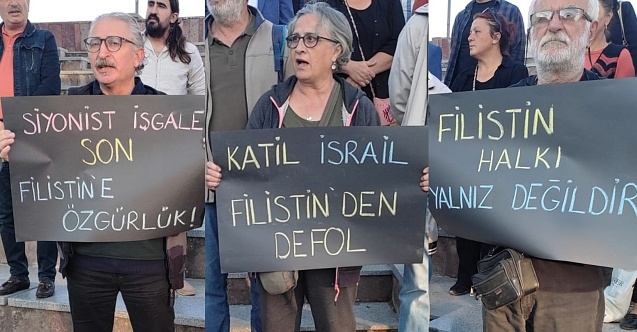 SİYONİST İŞGALE
SON
FİLİSTİN'E
ÖZGÜRLÜK!
KATİL İSRAİL
FİLİSTİN'DEN
DEFOL
FİLİSTİN
HALKI
YALNIZ DEĞİLDİR